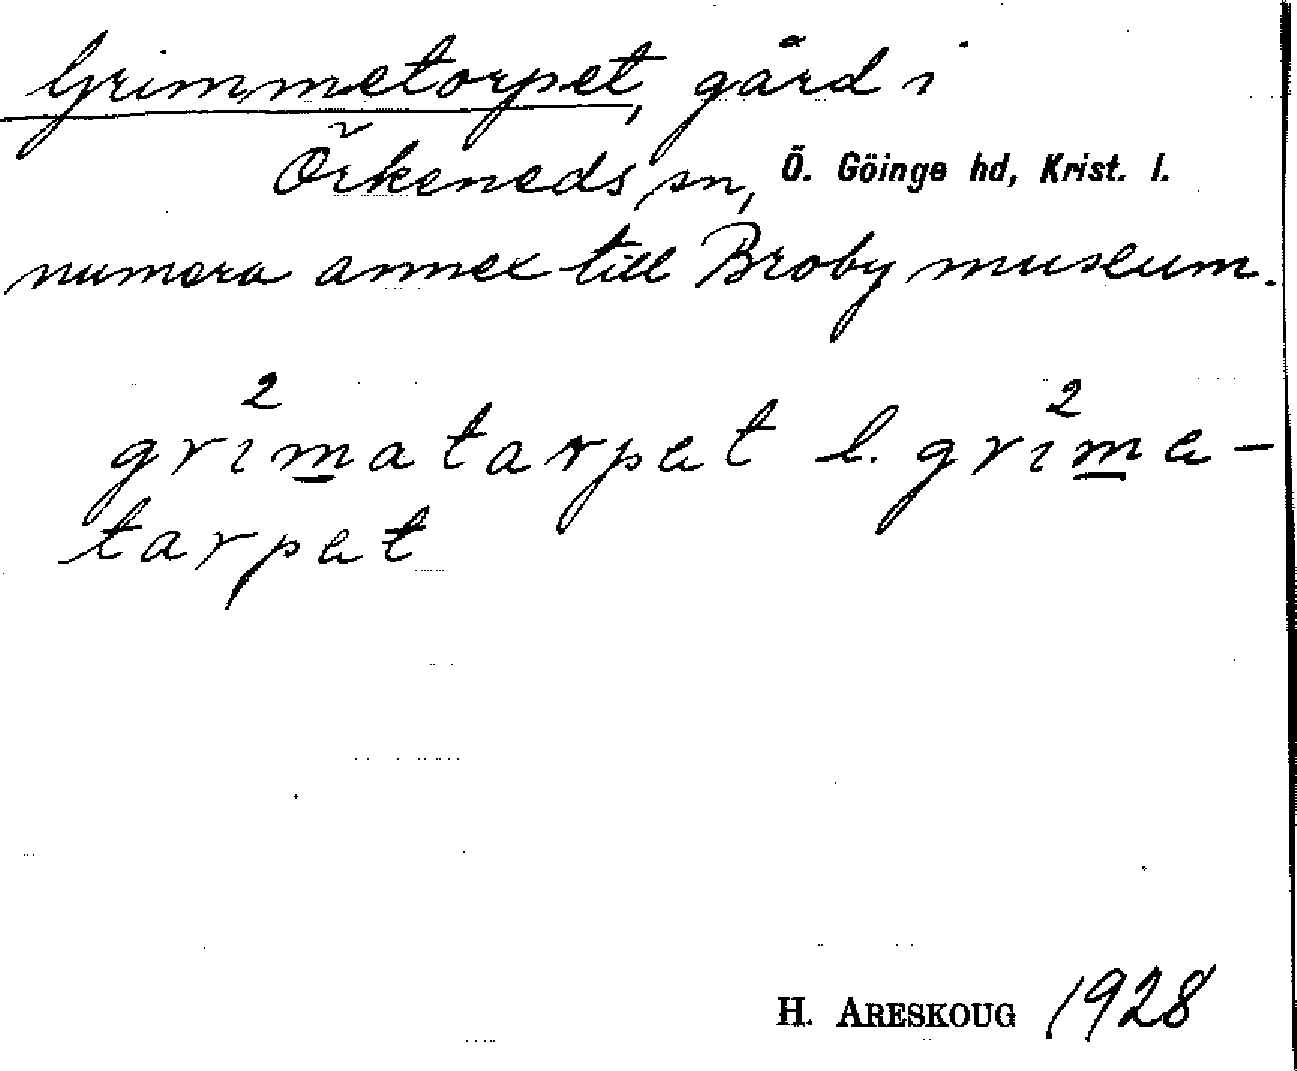 Grimmetorpet, gård i
Örkeneds sn, Ö. Göinge hd, Krist. l.
numera annex till Broby museum.
gri²matarpet l. gri²me-
tarpet
H. ARESKOUG 1928